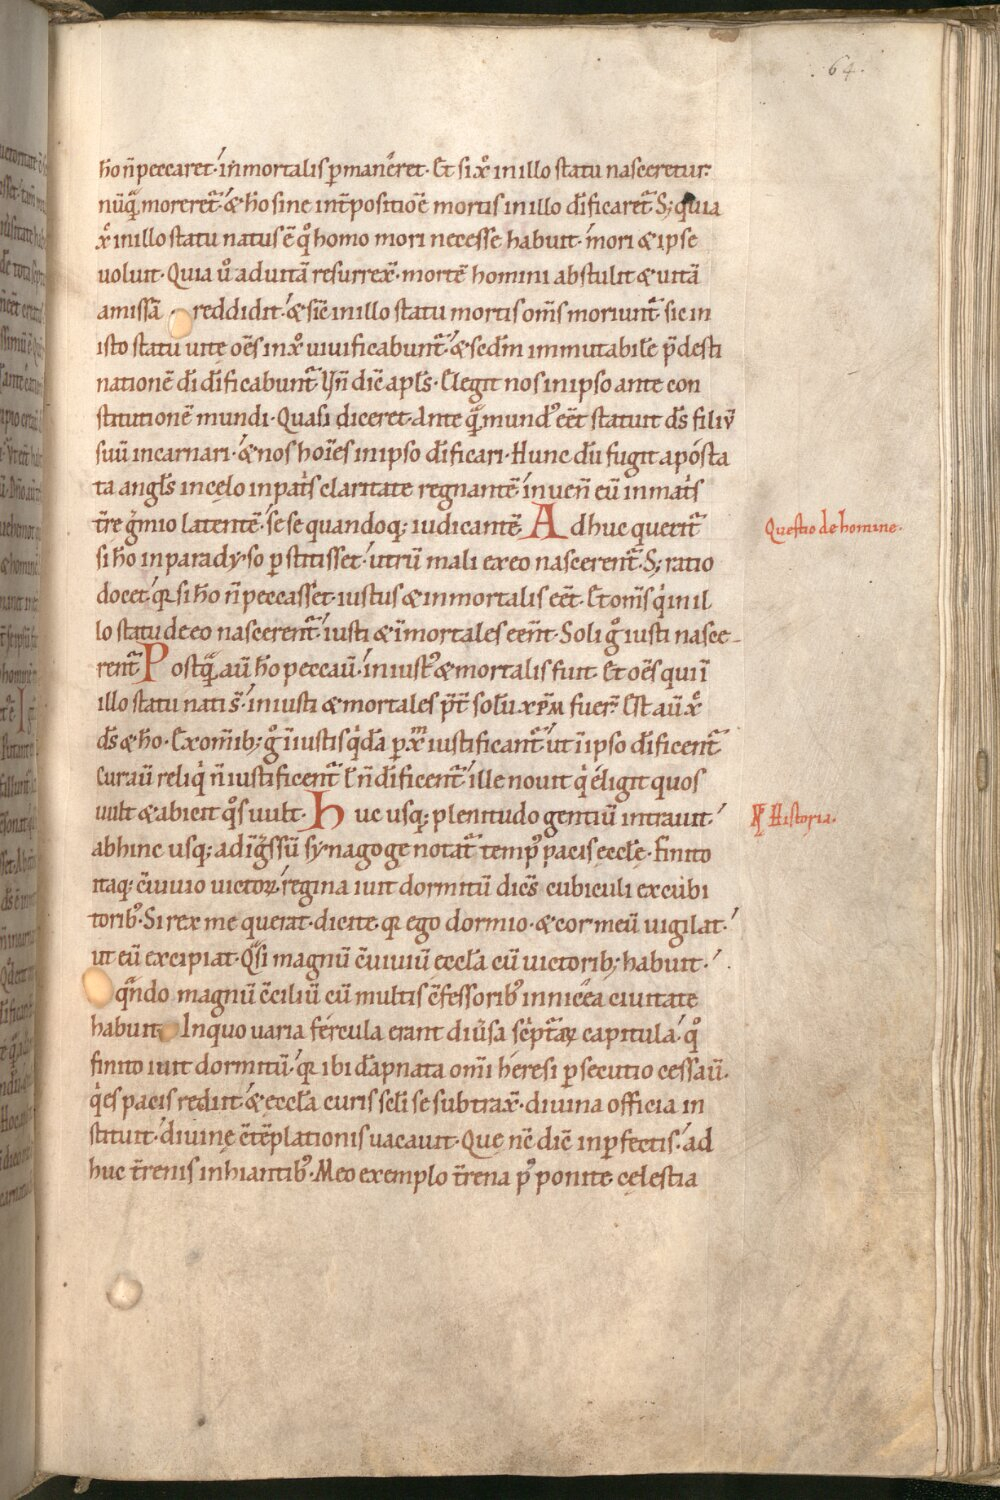 64.
ho n̄ peccaret· inmortalis ꝑmaneret· Et si xp̄r in illo statu nasceretur·
nūq̄ moreret᷑· & ho sine int̄positiōe mortis in illo d̄ificaret᷑ S; quia
xp̄r in illo statu natus ē q̊ homo mori necesse habuit· mori & ipse
voluit· Quia ů ad uitā resurrex̄· mortē homini abstulit & uitā
amissā reddidit· & sic̄ in illo statu mortis om̄s moriunt᷑ sic in
isto statu uite oēs in xp̊ uiuificabunt᷑· & scd̄m immutabilē p̄desti
nationē dī d̄ificabunt᷑ Vn̄ dic̄ apl̄s· Elegit nos in ipso ante con
stitutionē mundi· Quasi diceret· Ante q̄ mundꝰ eēt statuit ds̄ filiū
suū incarnari· & nos hoīes in ipso d̄ificari· Hunc dū fugit apósta
ta angl̄s in cęlo in pat̄s claritate regnantē· inuen̄ eū in mat̄s
t̄re ḡmio latentē· se se quandoq; iudicantē Adhuc querit᷑
Questio de homine·
si ho in paradyso ꝑstitisset· utrū mali ex eo nascerent᷑· S; ratio
docet· qr si ho n̄ peccasset· iustus & inmortalis eēt· Et om̄s q̇ in il
lo statu de eo nascerent᷑· iusti & īmortales eēnt· Soli g̊ iusti nasce-
rent᷑ Postq̄ aū ho peccaū· iniustꝰ & mortalis fuit· Et oēs qui ī
illo statu nati s̄· iniusti & mortales p̄t̄ solū xp̄m fuer̄· Est aū xp̊
ds̄ & ho· Ex om̄ib; g̊ īiustis q̇dā ꝑ xp̄m iustificant᷑· ut ī ipso d̄ificent᷑
Cur aū reliq̇ n̄ iustificent᷑ ł n̄ d̄ificent᷑· ille nouit q̇ éligit quos
uult & abicit q̊s uult· Huc usq; plenitudo gentiū intrauit·
Historia·
abhinc usq; ad īg̊ssū synagoge notat᷑ tempꝰ pacis eccl̄e· Finito
itaq; c̄uiuio uictoꝝ· regina iuit dormitū dicēs cubiculi excubi
toribꝰ· Si rex me querat· dicite· qr ego dormio· & cor meū uigilat·
ut eū excipiat· Q̄si magnū c̄uiuiū eccl̄a cū uictorib; habuit·
q̄ndo magnū c̄ciliū cū multis c̄fessoribꝰ in nicēa ciuitate
habuit In quo varia fercula erant diūsa sc̄ptaꝝ capitula· q̊
finito iuit dormitū· qr ibi dāpnata om̄i heresi ꝑsecutio cessaū·
q̇es pacis rediit· & eccl̄a curis scl̄i se subtrax̄· diuina officia in
stituit· diuinę c̄tēplationis uacauit· Que nc̄ dic̄ inꝑfectis· ad
huc t̄renis inhiantibꝰ· Meo exemplo t̄rena pꝰponite· cęlestia